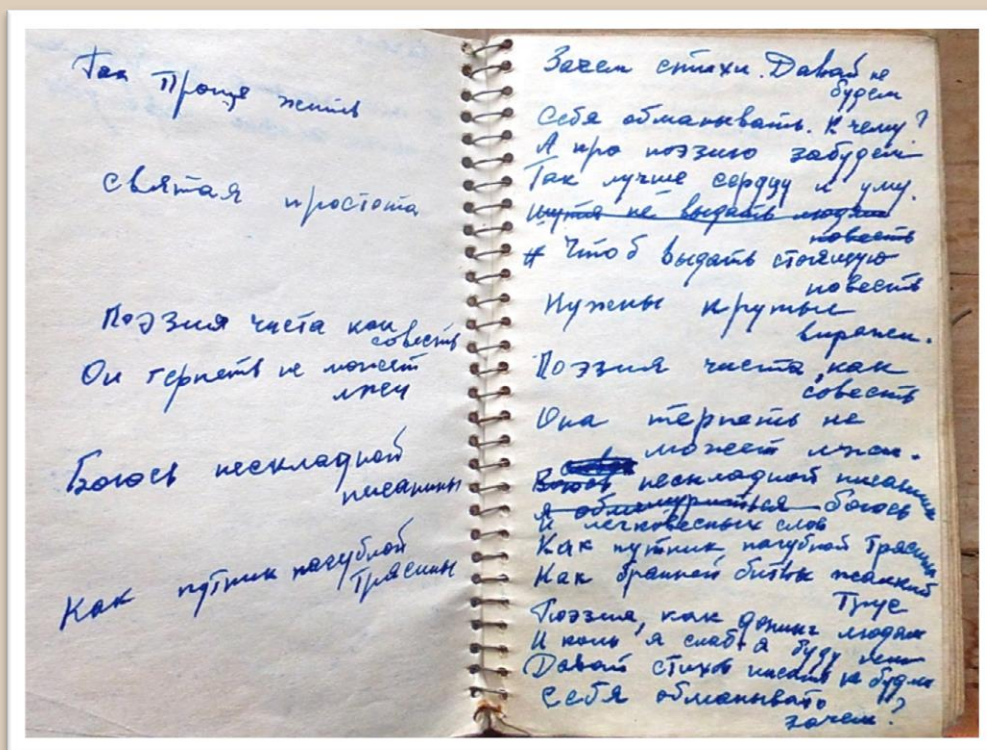 Так Проще жить
святая простота
Поэзия чиста как
совесть
Он терпеть не может
лжи
Боюсь нескладной
писанины
Как путник пагубной
трясины
Зачем стихи. Давай не
будем
Себя обманывать. К чему?
А про поэзию забудем
Так лучше сердцу и уму.
не выдать людям
повесть
# Чтоб выдать стоящую
повесть
Нужны крутые
виражи.
Поэзия чиста, как
совесть
Она терпеть не
может лжи.
Боюсь нескладной писанины
я обмишуриться боюсь
и легковесных слов
Как путник, пагубной трясины
Как бранной битвы жалкий
Трус
Поэзия, как допинг людям
И коль я слаб а буду нем
Давай стихов писать не будем
Себя обманывать
зачем?